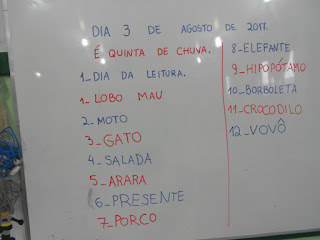 DIA 3 DE AGOSTO DE 2017.
É QUINTA DE CHUVA.
1_DIA DA LEITURA.
1_LOBO MAU
2_MOTO
3_GATO
4_SALADA
5_ARARA
6_PRESENTE
7_PORCO
8_ELEFANTE
9_HIPOPÓTAMO
10_BORBOLETA
11_CROCODILO
12_VOVÔ